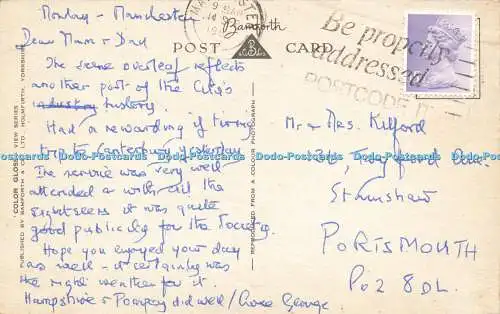 Monday - Manchester
Dear Mum & Dad
The scene overleaf reflects
another part of the City's
industry history.
Had a rewarding if tiring
trip to Canterbury yesterday
The service was very well
attended & with all the
sightseers it was quite
good publicity for the Society.
Hope you enjoyed your day
as well - it certainly was
the right weather for it.
Hampshire & Pompey did well / Love George
Bamforth
POST CARD
"COLOR GLOSS" VIEW SERIES
PUBLISHED BY BAMFORTH & CO. LTD., HOLMFIRTH, YORKSHIRE
REPRODUCED FROM A COLOUR PHOTOGRAPH
MANCHESTER
9
14
19
Be properly
addressed
POSTCODE IT
Mr & Mrs. Kilford
136, Ave.
Stamshaw
PORTSMOUTH
PO2 8DL.
Dodo-Postcards Dodo-Postcards Dodo-Postcards Dodo-Postcards Dodo-Postcards Dodo-Postcards